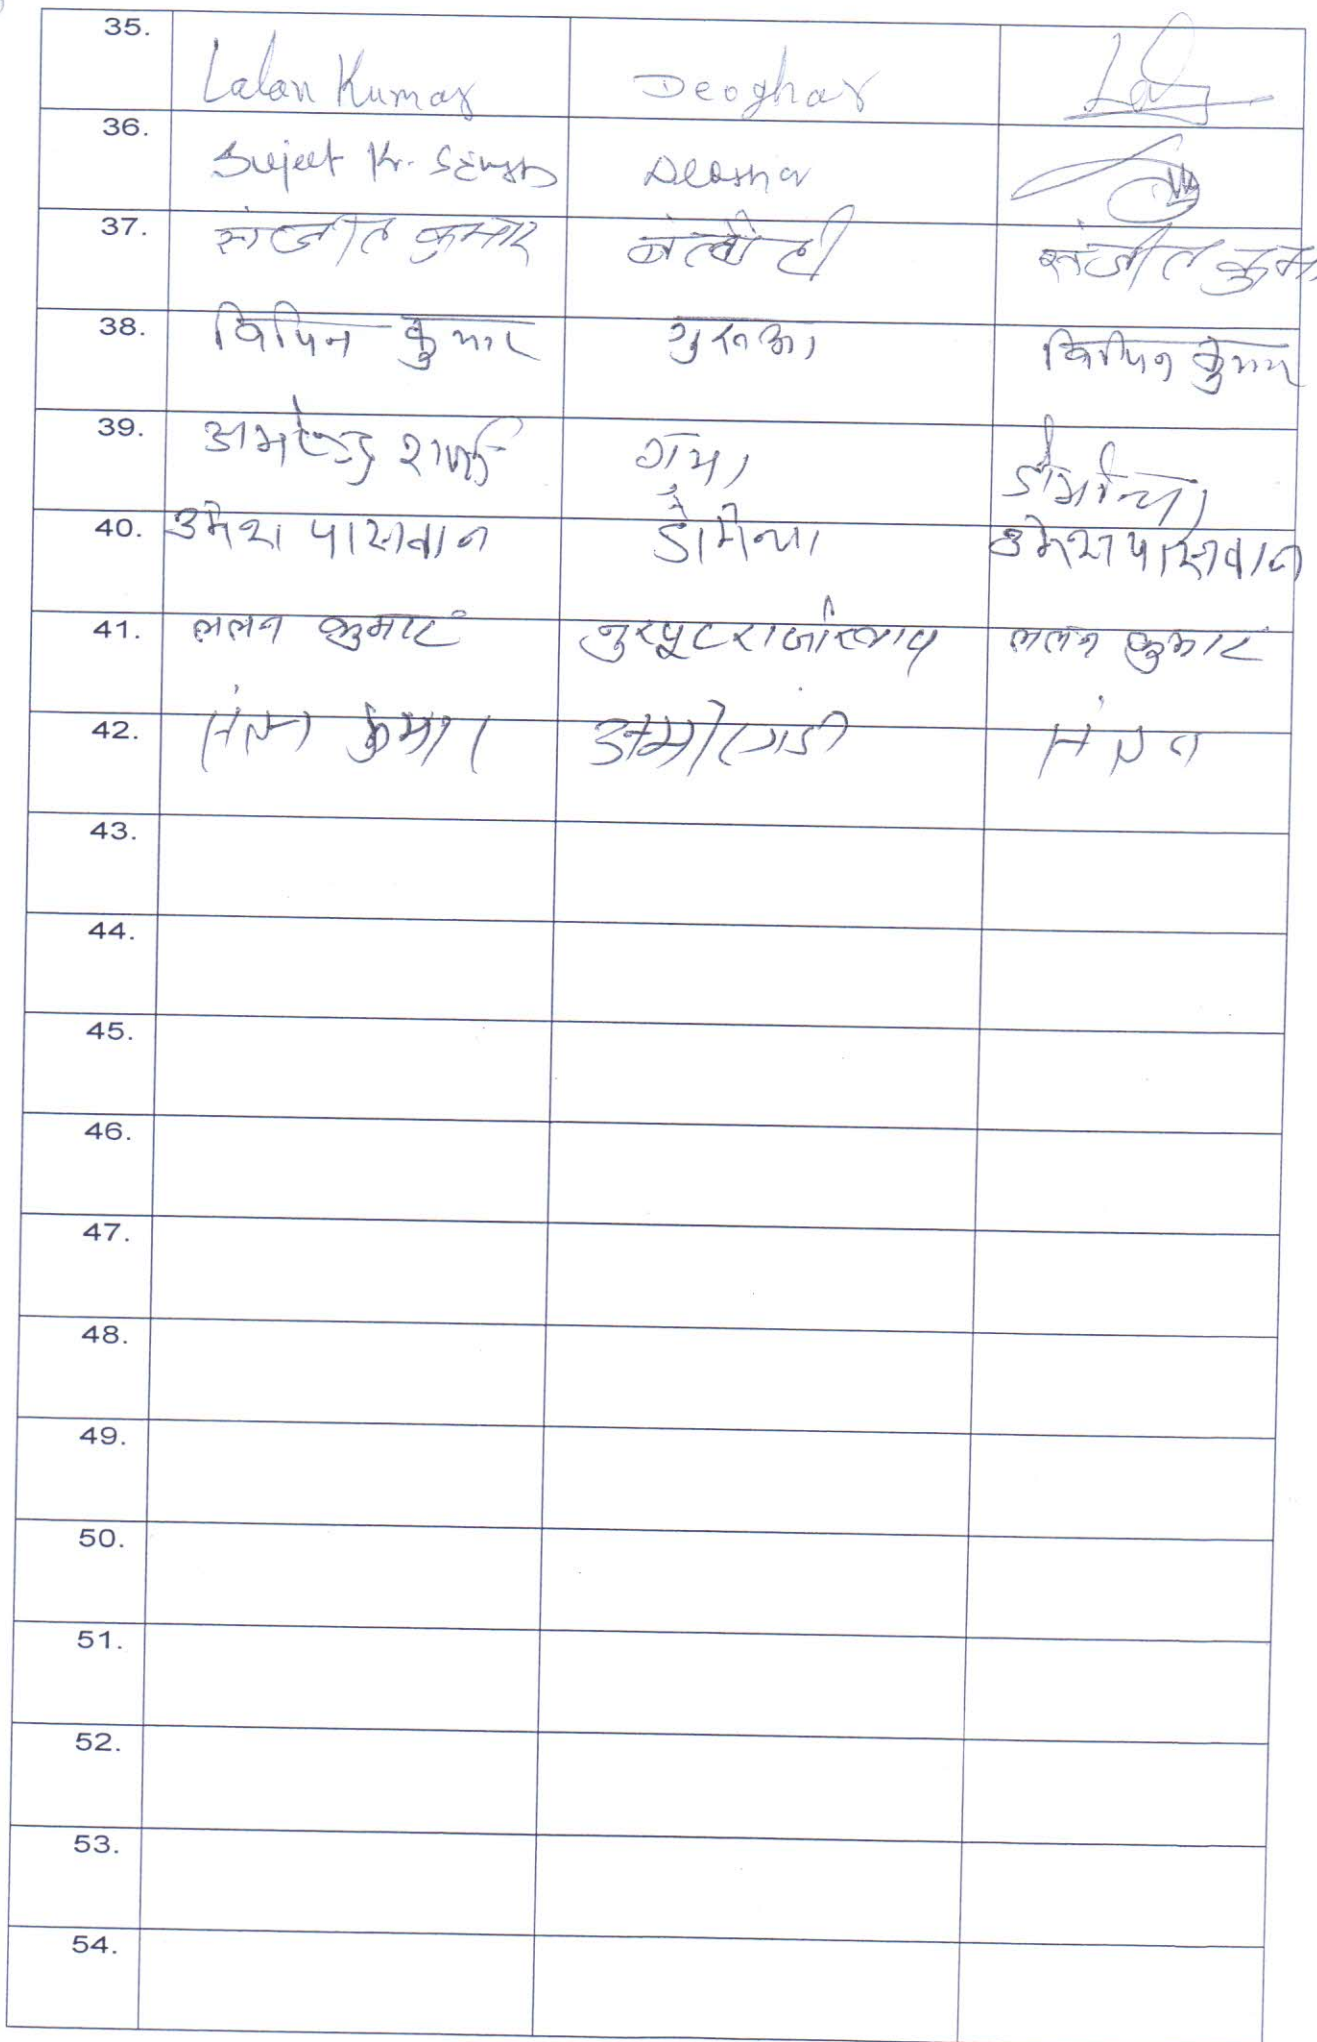 35. Lalan Kumar Deoghar
36. Sujeet Kr. Singh Deoghar
37. संजीत कुमार संजीत कुमा
38. विपिन कुमार गुरुआ विपिन कुमार
39. अमरेन्द्र शर्मा गया
40. उमेश पासवान डोमिया उमेश पासवान
41. ललन कुमार ललन कुमार
42. कुमार
43.
44.
45.
46.
47.
48.
49.
50.
51.
52.
53.
54.